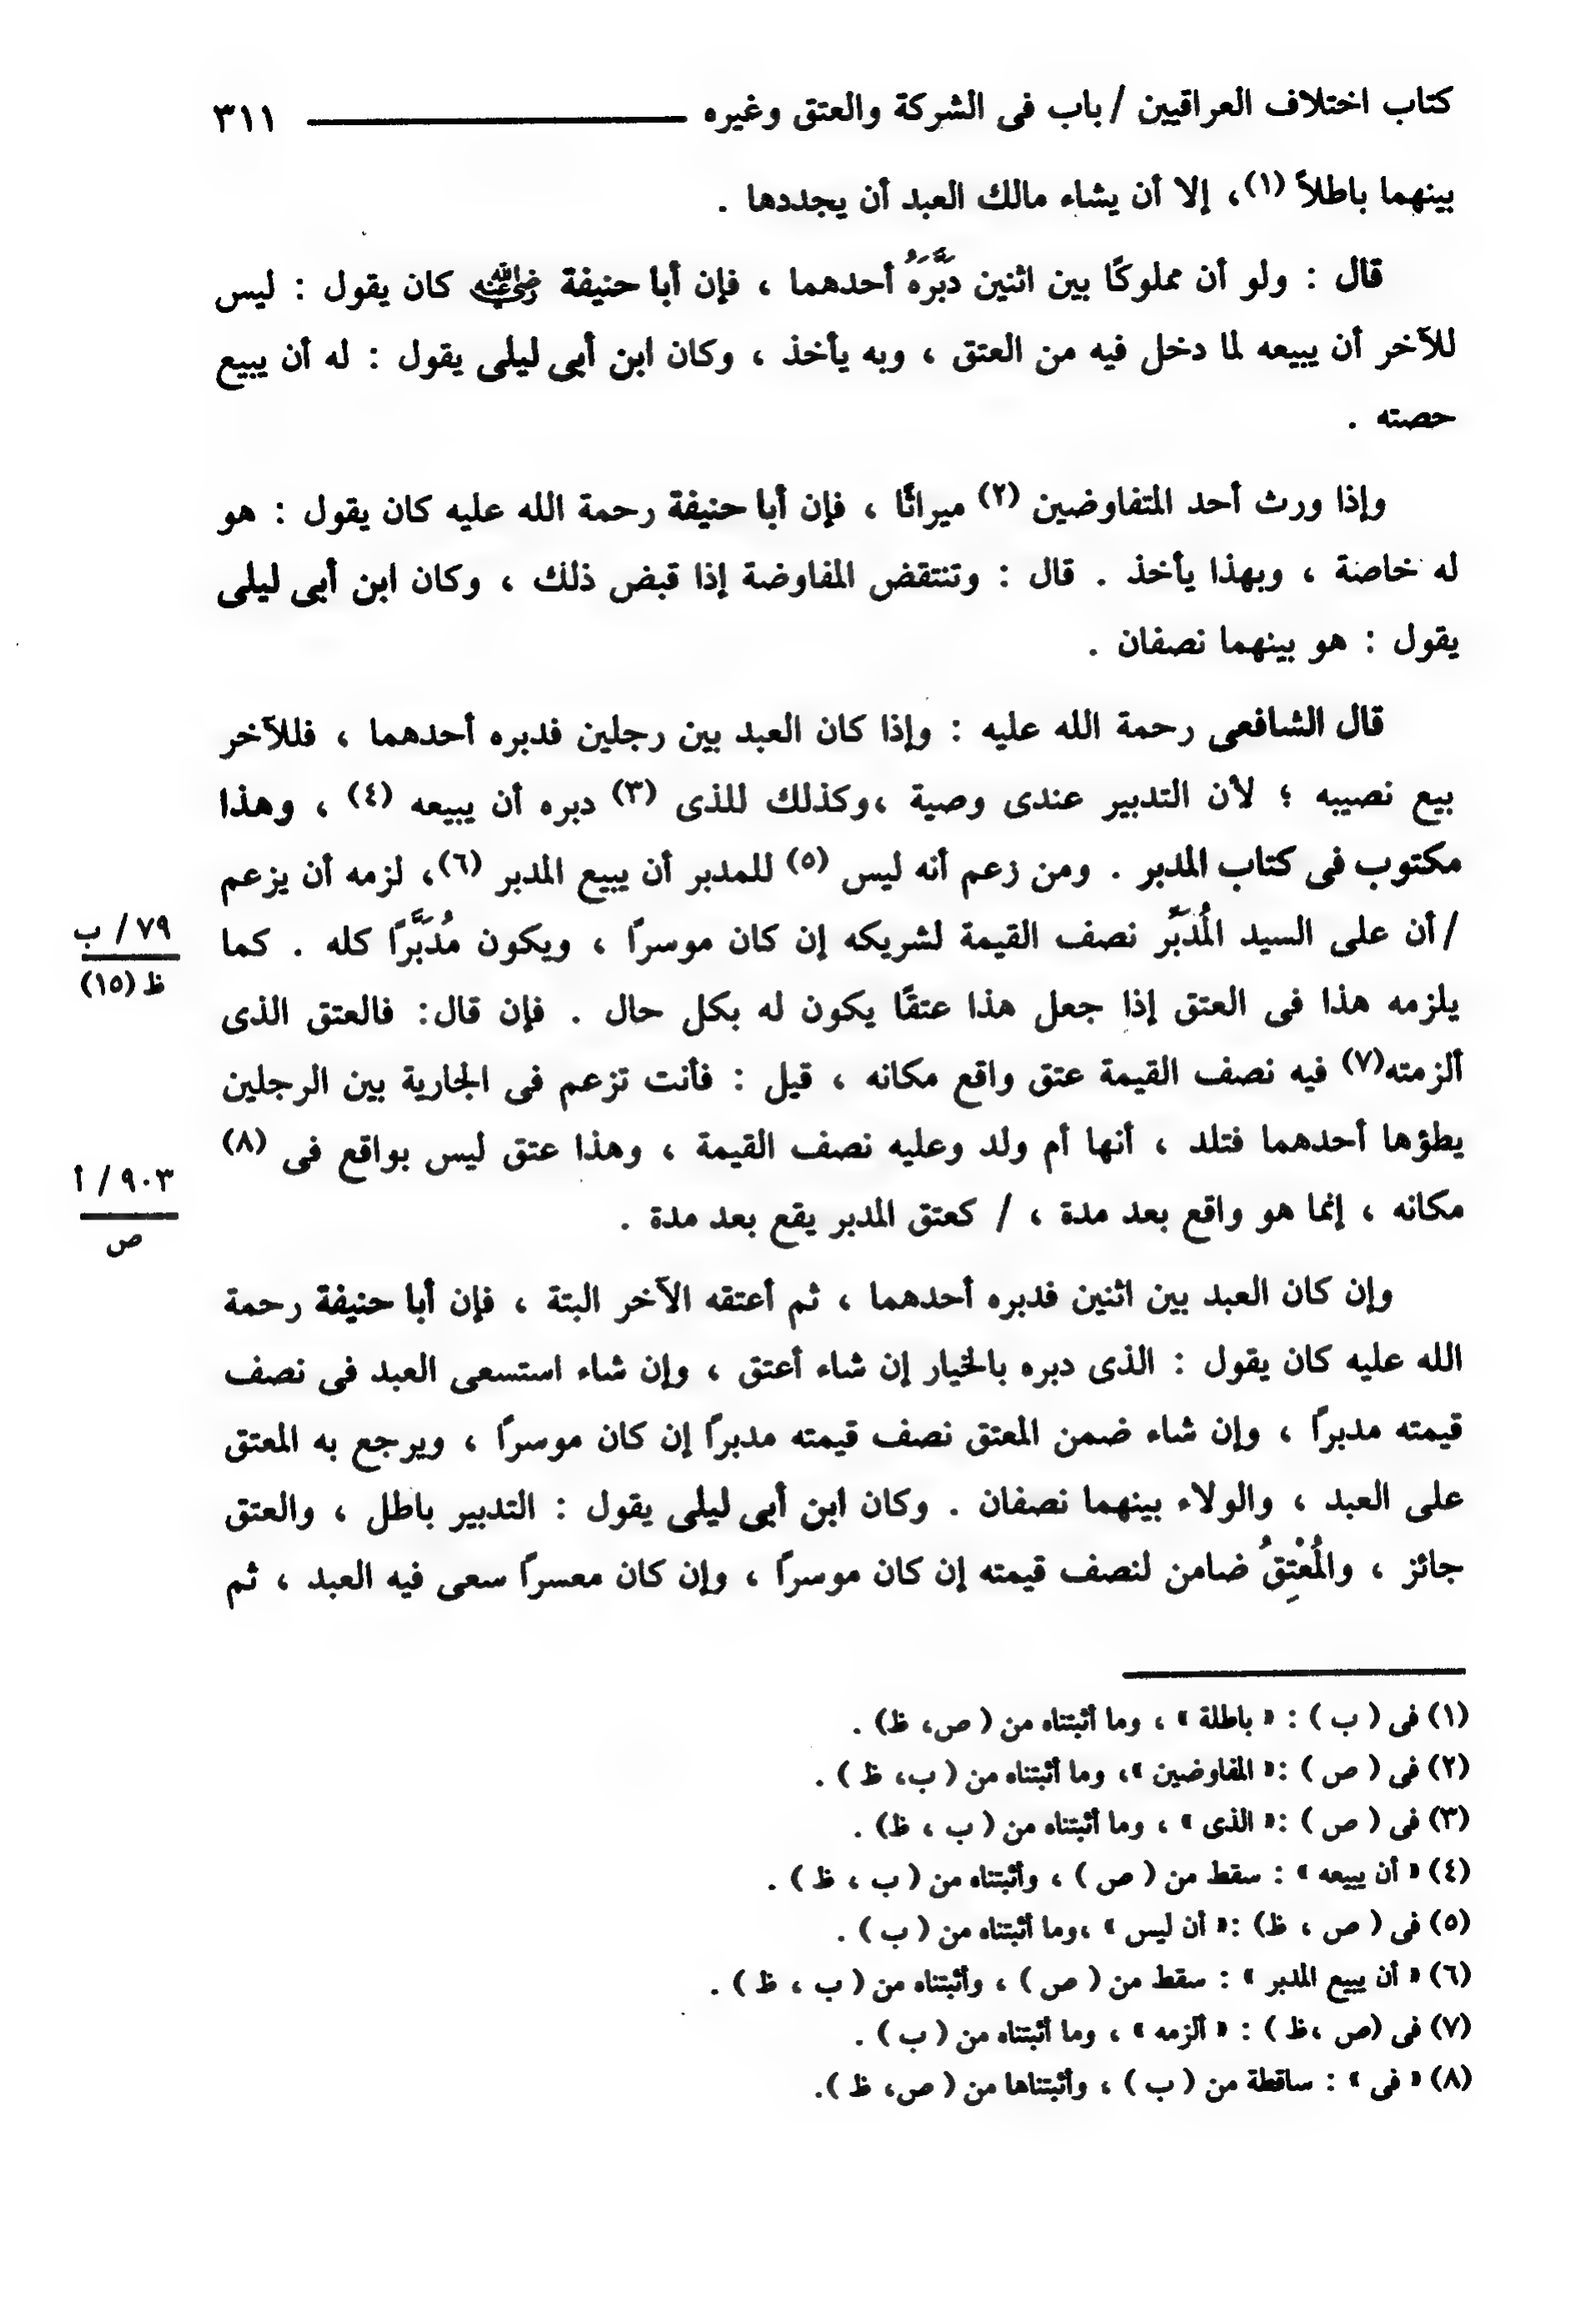 كتاب اختلاف العراقيين / باب فى الشركة والعتق وغيره ــــــــــ ٣١١
بينهما باطلاً (١)، إلا أن يشاء مالك العبد أن يجددها .
قال : ولو أن مملوكًا بين اثنين دَبَّرَهُ أحدهما ، فإن أبا حنيفة رضي الله عنه كان يقول : ليس
للآخر أن يبيعه لما دخل فيه من العتق ، وبه يأخذ ، وكان ابن أبى ليلى يقول : له أن يبيع
حصته .
وإذا ورث أحد المتفاوضين (٢) ميراثًا ، فإن أبا حنيفة رحمة الله عليه كان يقول : هو
له خاصة ، وبهذا يأخذ . قال : وتنتقض المفاوضة إذا قبض ذلك ، وكان ابن أبى ليلى
يقول : هو بينهما نصفان .
قال الشافعى رحمة الله عليه : وإذا كان العبد بين رجلين فدبره أحدهما ، فللآخر
بيع نصيبه ؛ لأن التدبير عندى وصية ،وكذلك للذى (٣) دبره أن يبيعه (٤) ، وهذا
مكتوب فى كتاب المدبر . ومن زعم أنه ليس (٥) للمدبر أن يبيع المدبر (٦)، لزمه أن يزعم
/ أن على السيد المُدَبِّر نصف القيمة لشريكه إن كان موسرًا ، ويكون مُدَبَّرًا كله . كما
٧٩ / ب
ظ (١٥)
يلزمه هذا فى العتق إذا جعل هذا عتقًا يكون له بكل حال . فإن قال: فالعتق الذى
ألزمته(٧) فيه نصف القيمة عتق واقع مكانه ، قيل : فأنت تزعم فى الجارية بين الرجلين
يطؤها أحدهما فتلد ، أنها أم ولد وعليه نصف القيمة ، وهذا عتق ليس بواقع فى (٨)
٩٠٣ / أ
ص
مكانه ، إنما هو واقع بعد مدة ، / كعتق المدبر يقع بعد مدة .
وإن كان العبد بين اثنين فدبره أحدهما ، ثم أعتقه الآخر البتة ، فإن أبا حنيفة رحمة
الله عليه كان يقول : الذى دبره بالخيار إن شاء أعتق ، وإن شاء استسعى العبد فى نصف
قيمته مدبرًا ، وإن شاء ضمن المعتق نصف قيمته مدبرًا إن كان موسرًا ، ويرجع به المعتق
على العبد ، والولاء بينهما نصفان . وكان ابن أبى ليلى يقول : التدبير باطل ، والعتق
جائز ، والمُعْتِقُ ضامن لنصف قيمته إن كان موسرًا ، وإن كان معسرًا سعى فيه العبد ، ثم
(١) فى ( ب ) : « باطلة » ، وما أثبتناه من ( ص، ظ) .
(٢) فى ( ص ) :« المفاوضين »، وما أثبتناه من ( ب، ظ ) .
(٣) فى ( ص ) :« الذى » ، وما أثبتناه من ( ب ، ظ) .
(٤) « أن يبيعه » : سقط من ( ص ) ، وأثبتناه من ( ب ، ظ ) .
(٥) فى ( ص ، ظ) :« أن ليس » ،وما أثبتناه من ( ب ) .
(٦) « أن يبيع المدبر » : سقط من ( ص ) ، وأثبتناه من ( ب ، ظ ) .
(٧) فى (ص ،ظ ) : « ألزمه » ، وما أثبتناه من ( ب ) .
(٨) « فى » : ساقطة من ( ب ) ، وأثبتناها من ( ص، ظ ).